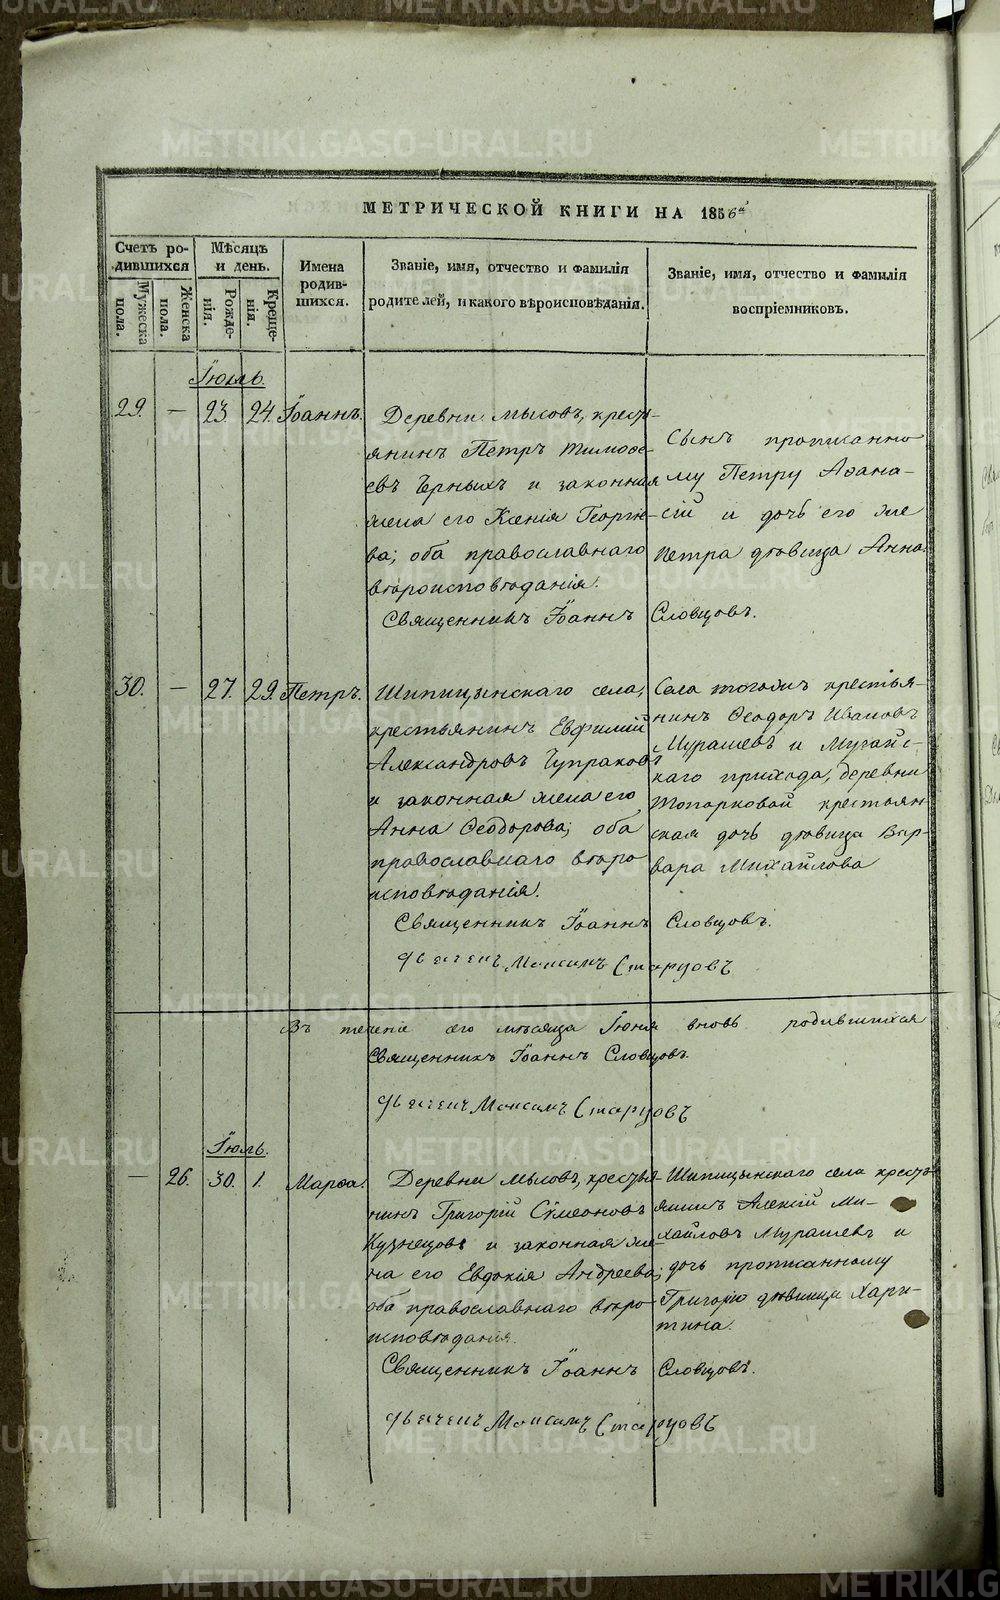 МЕТРИЧЕСКОЙ КНИГИ НА 1856й
Счетъ родившихся
Мужеска пола.
Женска пола.
Мѣсяцъ и день.
Рожденія.
Крещенія.
Имена родившихся.
Званіе, имя, отчество и фамилія
родителей, и какого вѣроисповѣданія.
Званіе, имя, отчество и фамилія
воспріемниковъ.
Іюль.
29. — 23. 24. Іоаннъ.
Деревни Мысовъ, кресть-
янинъ Петръ Тимоѳе-
евъ Черныхъ и законная
жена его Ксенія Георгіе-
ва; оба православнаго
вѣроисповѣданія.
Сынъ прописанно
му Петру Аѳана-
сій и дочь его же
Петра дѣвица Анна.
Священникъ Іоаннъ Словцовъ.
30. — 27. 29. Петръ.
Шипицынскаго села,
крестьянинъ Евфимій
Александровъ Чупраковъ
и законная жена его
Анна Ѳеодорова; оба
православнаго вѣро
исповѣданія.
Села тогожъ крестья-
нинъ Ѳеодоръ Ивановъ
Мурашевъ и Мугайс-
каго прихода, деревни
Топорковой крестьян
ская дочь дѣвица Вар-
вара Михайлова
Священникъ Іоаннъ Словцовъ.
Дьячекъ Максимъ Старцовъ
Въ теченіе сего мѣсяца Іюня вновь родившихся
Священникъ Іоаннъ Словцовъ.
Дьячекъ Максимъ Старцовъ
Іюль.
— 26. 30. 1. Марѳа.
Деревни Мысовъ, крестья-
нинъ Григорій Сѵмеоновъ
Кузнецовъ и законная же-
на его Евдокія Андреева;
оба православнаго вѣро-
исповѣданія.
Шипицынскаго села кресть
янинъ Алексій Ми-
хайловъ Мурашевъ и
дочь прописанному
Григорію дѣвица Хари-
тина.
Священникъ Іоаннъ Словцовъ.
Дьячекъ Максимъ Старцовъ
METRIKI.GASO-URAL.RU